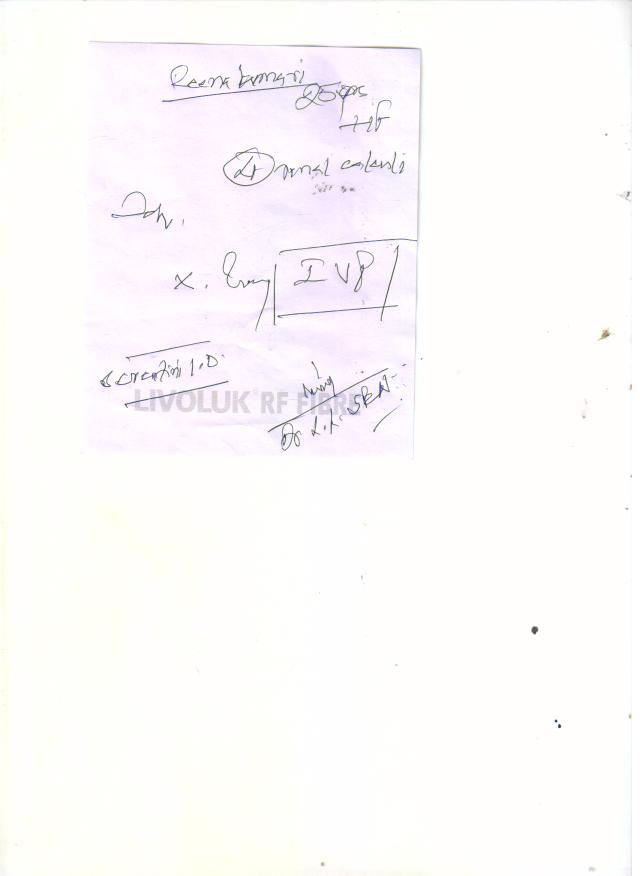 Reena kumari
25 yrs
H/F
Lt renal calculi
Adv.
X. Ray IVP
S. creatini 1.0
LIVOLUK RF FIBRE
Dr. L.L. SRN